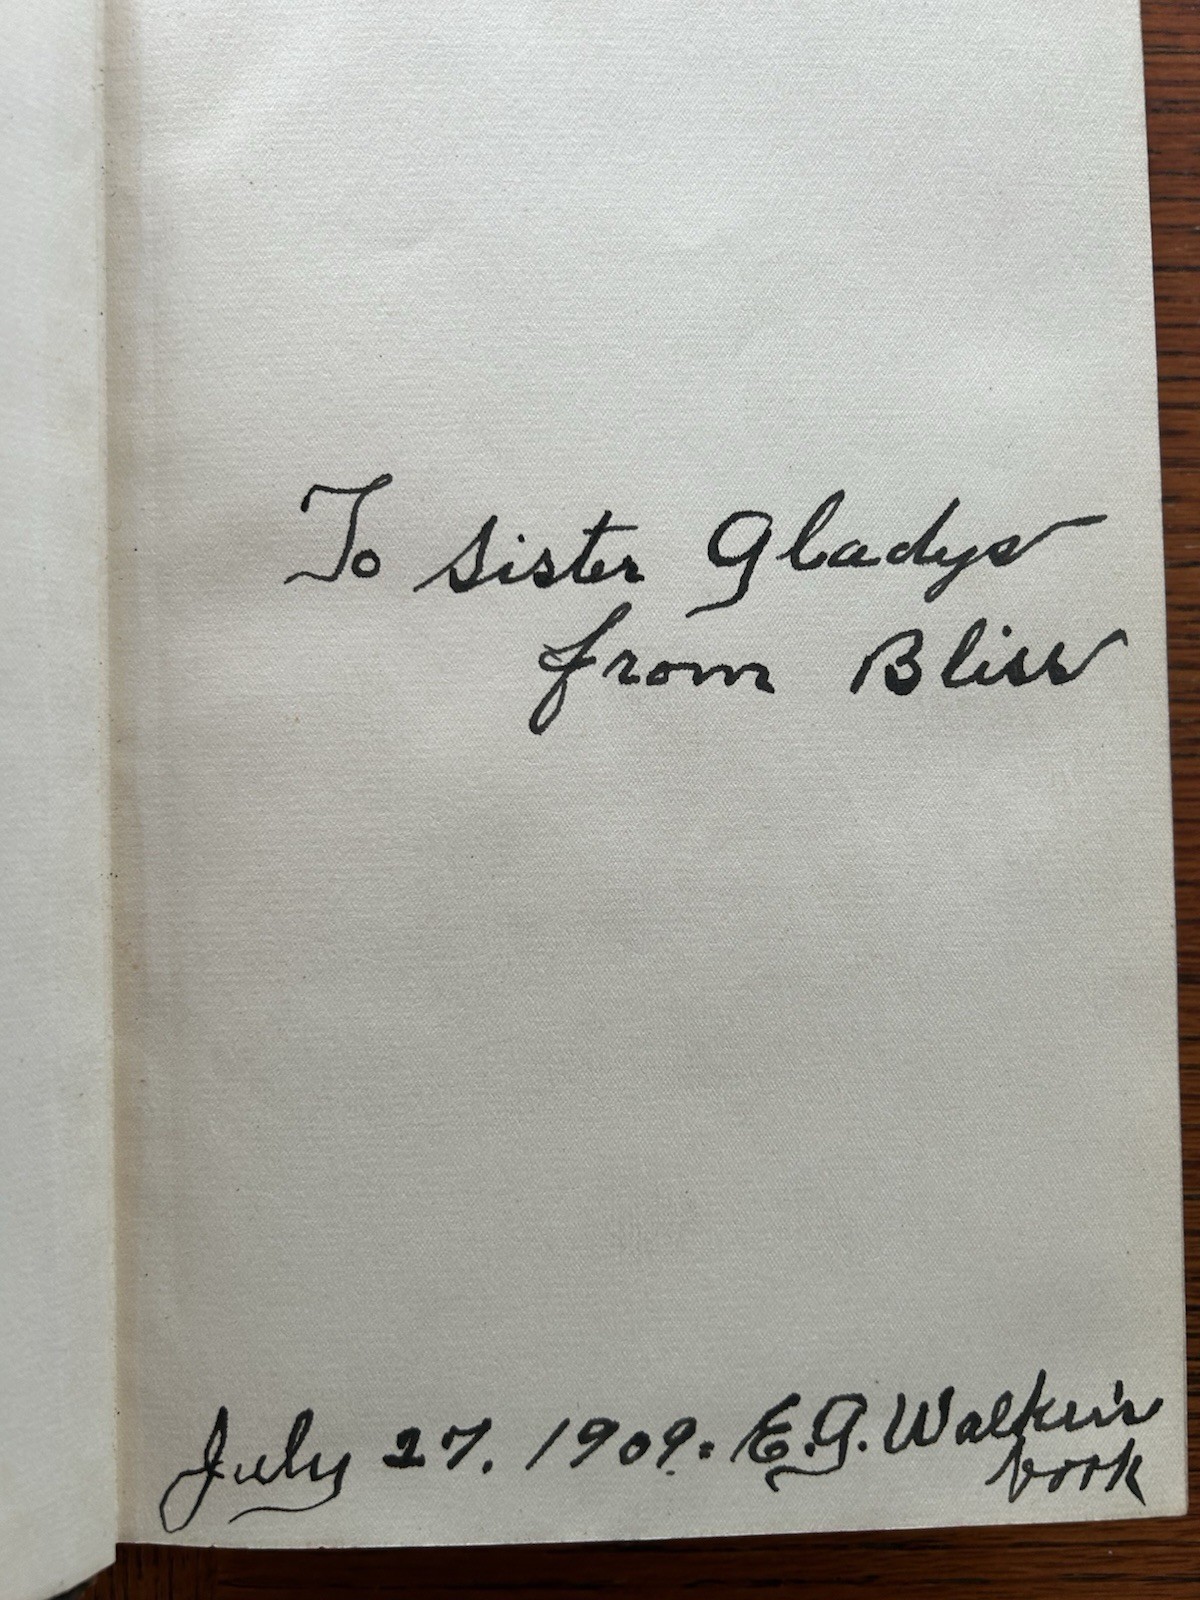 To Sister Gladys
from Bliss
July 27. 1909. E.G. Walker's
book